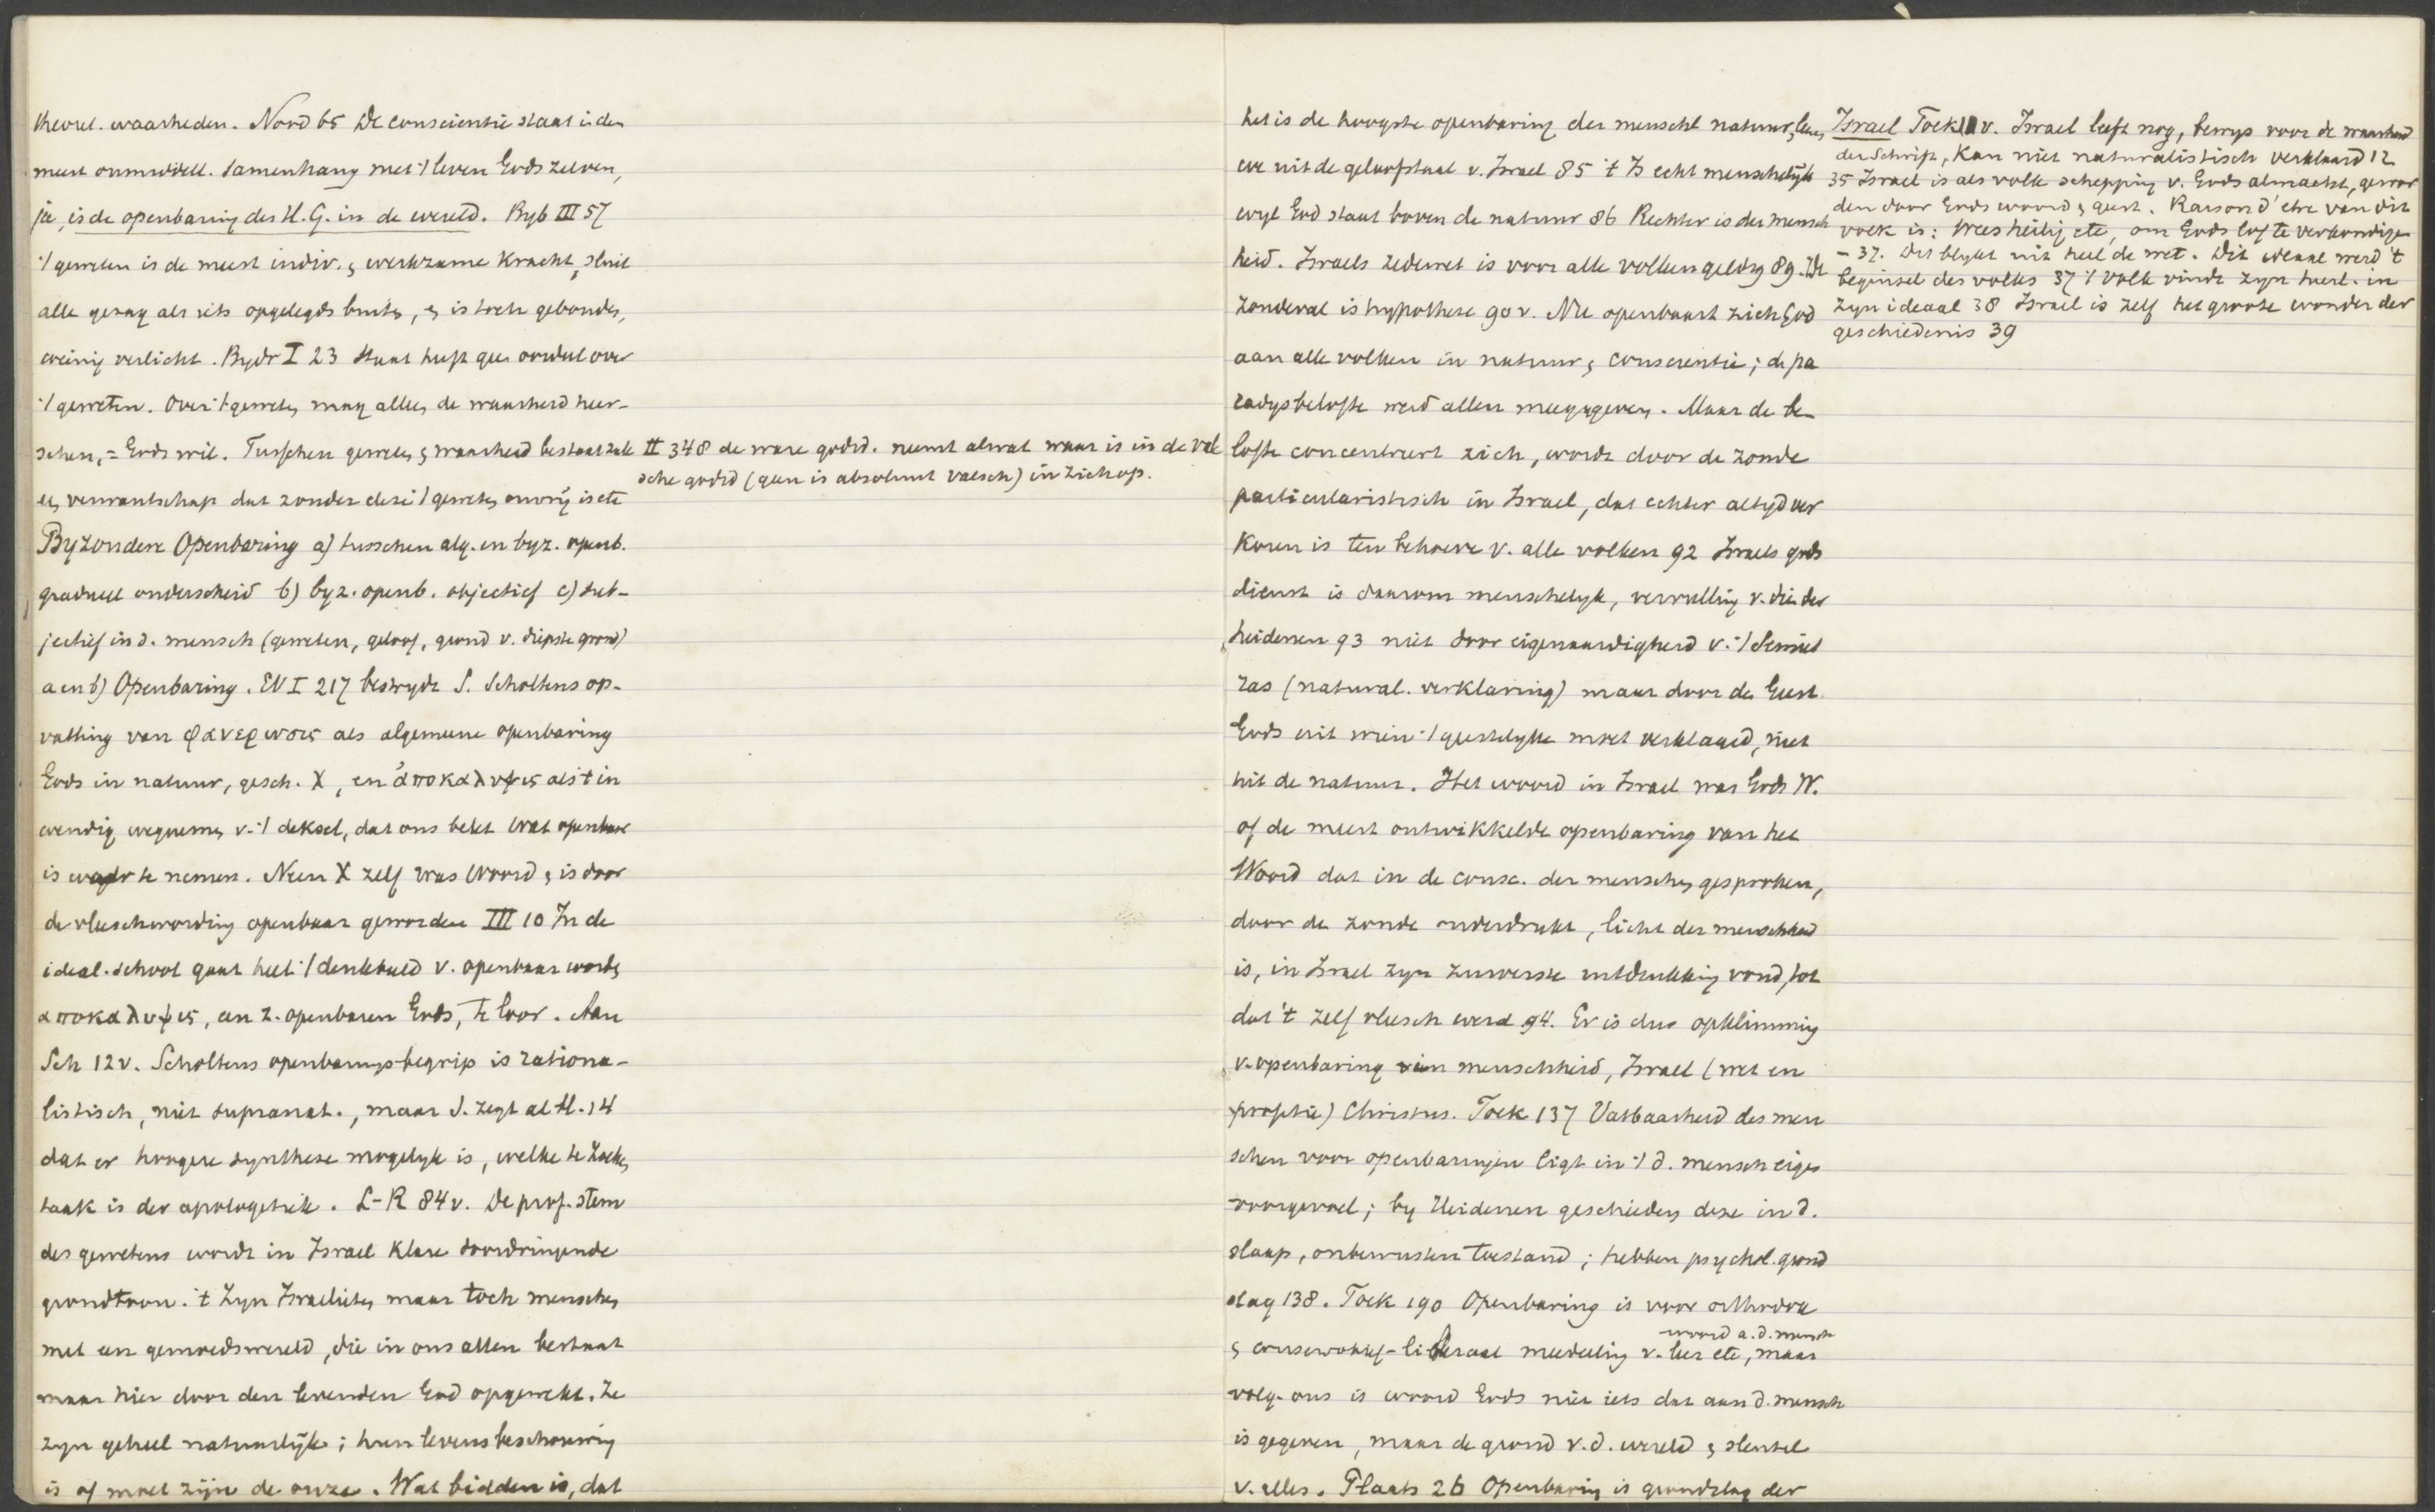 theoret. waarheden. Nood 65 De conscientie staat in den
meest onmiddell. samenhang met 't leven Gods zelven,
ja, is de openbaring des H. G. in de wereld. Byb III 57
't geweten is de meest indiv. & werkzame kracht, sluit
alle gezag als iets opgelegds buiten, & is toch gebonden,
weinig verlicht. Bydr I 23 staat
't geweten. Over 't geweten mag alleen de waarheid heer-
schen, = Gods wil. Tusschen geweten & waarheid bestaat zulk
een verwantschap dat zonder deze 't geweten onvrij is etc
Byzondere Openbaring a) tusschen alg. en byz. openb.
gradueel onderscheid b) byz. openb. objectief c) sub-
jectief in d. mensch (geweten, geloof, grond v. diepste grond)
a en b) Openbaring. EV I 217 bestrydt S. Scholtens op-
vatting van φανερωσις als algemeene openbaring
Gods in natuur, gesch. X, en ἀποκαλυψις als 't in
wendig wegnemen v. 't deksel, dat ons belet wat openbaar
is waar te nemen. Neen X zelf was Woord & is door
de vleeschwording openbaar geworden III 10 In de
ideal. school gaat heel 't denkbeeld v. openbaar worden
αποκαλυψις, en z. openbaren Gods, te loor. Aan
Sch 12 v. Scholtens openbaringsbegrip is rationa-
listisch, niet supranat., maar S. zegt al H. 14
dat er hoogere synthese mogelyk is, welke te zoeken
taak is der apologetiek. L-R 84 v. De prof. stem
des gewetens wordt in Israel klare doordringende
grondtoon. 't Zyn Israelieten maar toch menschen
met een gemoedswereld, die in ons allen bestaat
maar hier door den levenden God opgewekt. Ze
zyn geheel natuurlijk; hun levensbeschouwing
is of moet zijn de onze. Wat bidden is, dat
II 348 de ware godsd. neemt alwat waar is in de val
sche godsd (geen is absoluut valsch) in zich op.
het is de hoogste openbaring der menschel natuur, leeren
we uit de geloofstaal v. Israel 85 't Is echt menschelijk
wyl God staat boven de natuur 86 Rechter is der mensch
heid. Israels zedewet is voor alle volken geldig 89. De
zondeval is hypothese 90 v. Nu openbaart zich God
aan alle volken in natuur & conscientie; de pa
radysbelofte werd allen meegegeven. Maar de be-
lofte concentreert zich, wordt door de zonde
particularistisch in Israel, dat echter altyd ver
koren is ten behoeve v. alle volken 92 Israels gods
dienst is daarom menschelyk, vervulling v. die der
heidenen 93 niet door eigenaardigheid v. 't Semiet
ras (natural. verklaring) maar door de Geest
Gods uit wien 't geestelyke moet verklaard, niet
uit de natuur. Het woord in Israel was Gods W.
of de meest ontwikkelde openbaring van het
Woord dat in de consc. der menschen gesproken,
door de zonde onderdrukt, licht der menschheid
is, in Israel zyn zuiverste uitdrukking vond, tot
dat 't zelf vleesch werd 94. Er is dus opklimming
v. openbaring in menschheid, Israel (wet en
profetie) Christus. Toek 137 Vatbaarheid des men
schen voor openbaringen ligt in 't d. mensch eigen
voorgevoel; by Heidenen geschieden deze in d.
slaap, onbewusten toestand; hebben psychol. grond
slag 138. Toek 190 Openbaring is voor orthodox
woord a. d. mensch
& conservatief-liberaal mededeeling v. leer etc, maar
volg. ons is woord Gods niet iets dat aan d. mensch
is gegeven, maar de grond v. d. wereld & sleutel
v. alles. Plaats 26 Openbaring is grondslag der
Israel Toek 11 v. Israel leeft nog, bewys voor de waarheid
der Schrift, kan niet naturalistisch verklaard 12
35 Israel is als volk schepping v. Gods almacht, gewor
den door Gods woord & geest. Raison d'etre van dit
volk is: Wees heilig etc, om Gods lof te verkondigen
– 37. Dit blykt uit heel de wet. Dit ideaal werd 't
beginsel des volks 37 't volk vindt zyn heerl. in
zyn ideaal 38 Israel is zelf het groote wonder der
geschiedenis 39